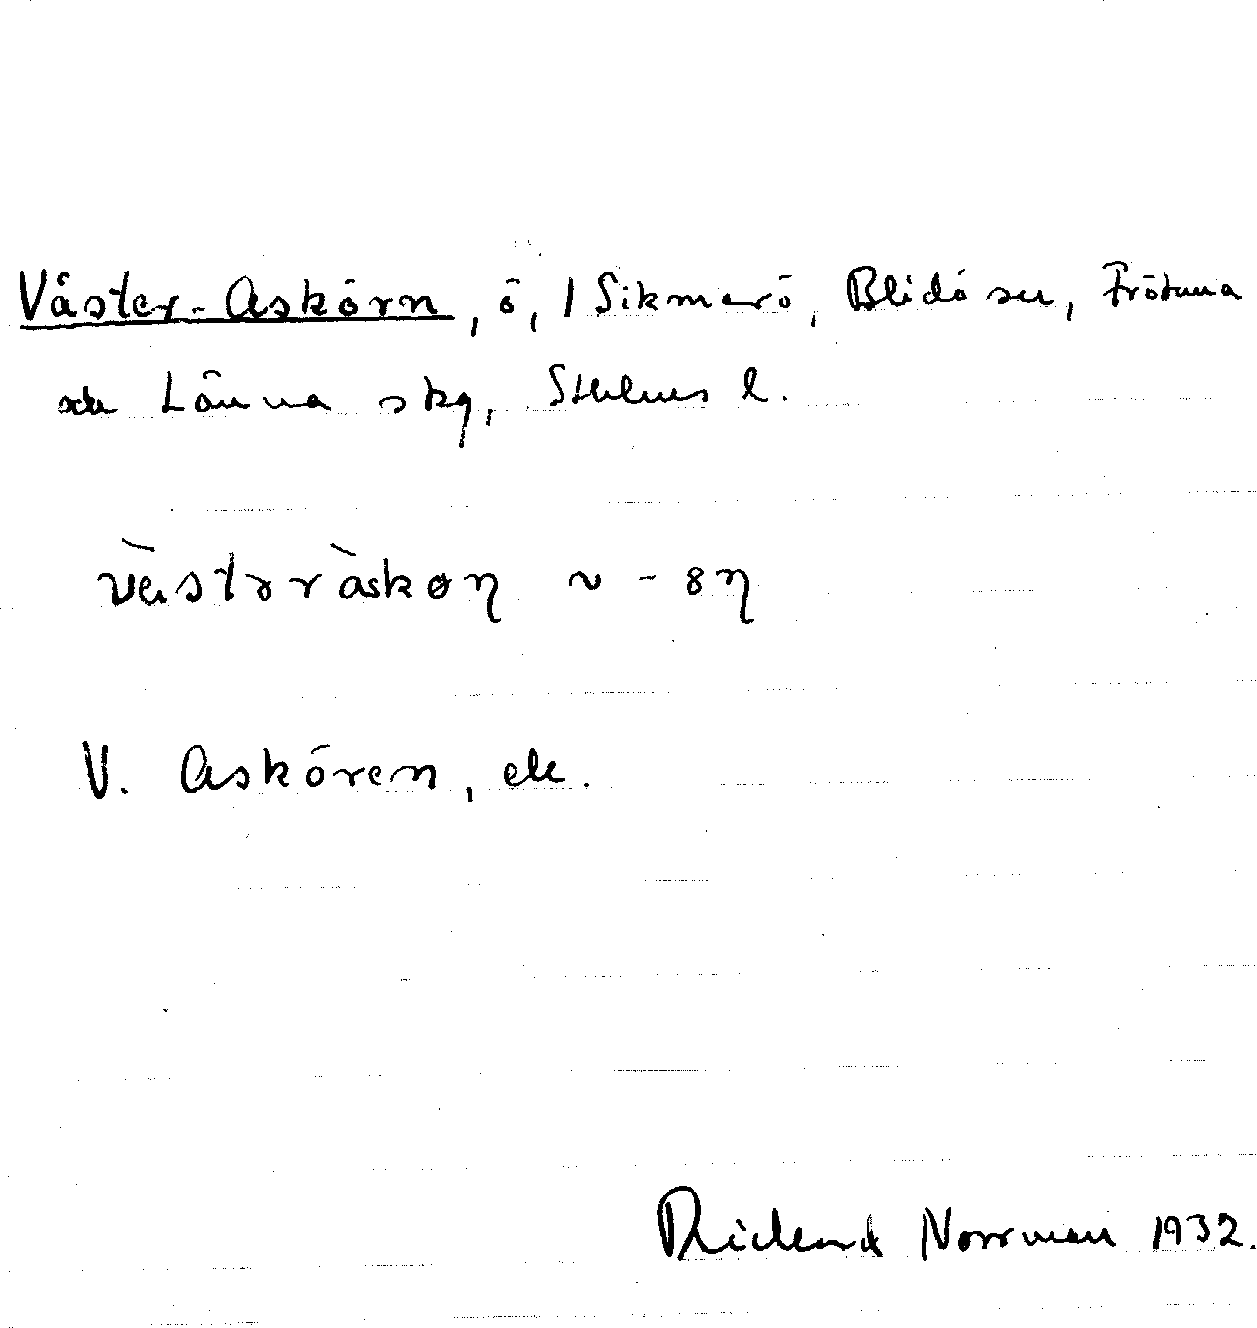 Väster-Askörn, ö, 1 Sikmarö, Blidö sn, Frötuna
och Länna skg, Sthlms l.
vä̀stəràskøn ~ -8n
V. Askören, ek.
Rickard Norrman 1932.